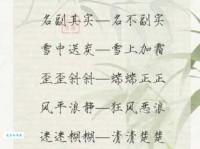 名副其实—名不副实
雪中送炭—雪上加霜
歪歪斜斜—端端正正
风平浪静—狂风恶浪
迷迷糊糊—清清楚楚